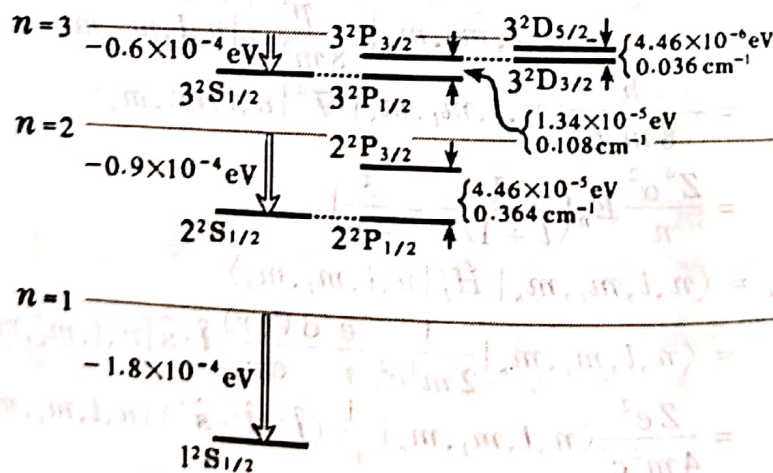 n=3
−0.6×10⁻⁴eV
3²S₁/₂
3²P₃/₂
3²P₁/₂
3²D₅/₂
3²D₃/₂
{4.46×10⁻⁶eV
0.036cm⁻¹
{1.34×10⁻⁵eV
0.108cm⁻¹
n=2
−0.9×10⁻⁴eV
2²S₁/₂
2²P₃/₂
2²P₁/₂
{4.46×10⁻⁵eV
0.364cm⁻¹
n=1
−1.8×10⁻⁴eV
1²S₁/₂